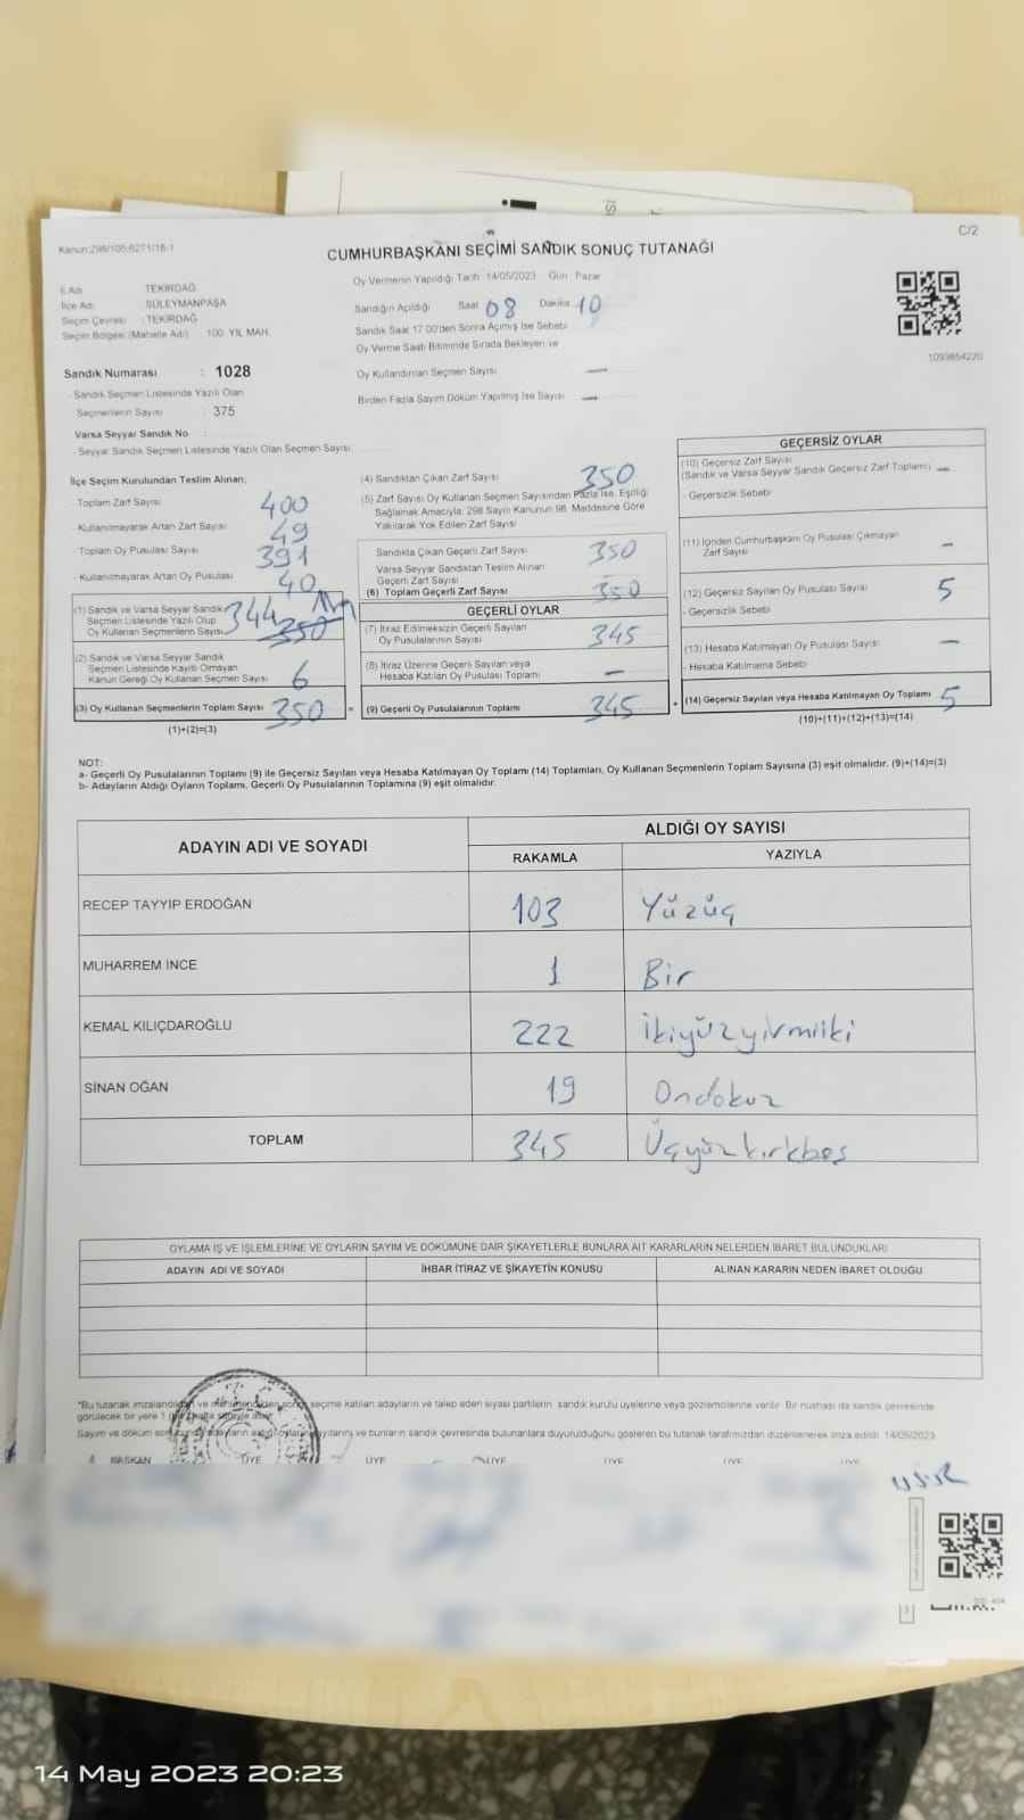 C/2
Kanun:298/105-6271/16-1
CUMHURBAŞKANI SEÇİMİ SANDIK SONUÇ TUTANAĞI
İl Adı : TEKİRDAĞ
İlçe Adı : SÜLEYMANPAŞA
Seçim Çevresi : TEKİRDAĞ
Seçim Bölgesi (Mahalle Adı) : 100. YIL MAH.
Oy Vermenin Yapıldığı Tarih 14/05/2023 Gün : Pazar
Sandığın Açıldığı Saat 08 Dakika 10
Sandık Saat 17.00'den Sonra Açılmış İse Sebebi
Oy Verme Saati Bitiminde Sırada Bekleyen ve
Oy Kullandırılan Seçmen Sayısı —
Birden Fazla Sayım Döküm Yapılmış İse Sayısı —
1093854220
Sandık Numarası : 1028
- Sandık Seçmen Listesinde Yazılı Olan
Seçmenlerin Sayısı : 375
Varsa Seyyar Sandık No :
- Seyyar Sandık Seçmen Listesinde Yazılı Olan Seçmen Sayısı
İlçe Seçim Kurulundan Teslim Alınan;
- Toplam Zarf Sayısı 400
- Kullanılmayarak Artan Zarf Sayısı 49
- Toplam Oy Pusulası Sayısı 391
- Kullanılmayarak Artan Oy Pusulası 40
(1) Sandık ve Varsa Seyyar Sandık
Seçmen Listesinde Yazılı Olup
Oy Kullanan Seçmenlerin Sayısı 344 350
(2) Sandık ve Varsa Seyyar Sandık
Seçmen Listesinde Kayıtlı Olmayan
Kanun Gereği Oy Kullanan Seçmen Sayısı 6
(3) Oy Kullanan Seçmenlerin Toplam Sayısı 350
(1)+(2)=(3)
(4) Sandıktan Çıkan Zarf Sayısı 350
(5) Zarf Sayısı Oy Kullanan Seçmen Sayısından Fazla İse, Eşitliği
Sağlamak Amacıyla; 298 Sayılı Kanunun 98. Maddesine Göre
Yakılarak Yok Edilen Zarf Sayısı
Sandıkta Çıkan Geçerli Zarf Sayısı 350
Varsa Seyyar Sandıktan Teslim Alınan
Geçerli Zarf Sayısı
(6) Toplam Geçerli Zarf Sayısı 350
GEÇERLİ OYLAR
(7) İtiraz Edilmeksizin Geçerli Sayılan
Oy Pusulalarının Sayısı 345
(8) İtiraz Üzerine Geçerli Sayılan veya
Hesaba Katılan Oy Pusulası Toplamı —
= (9) Geçerli Oy Pusulalarının Toplamı 345
GEÇERSİZ OYLAR
(10) Geçersiz Zarf Sayısı
(Sandık ve Varsa Seyyar Sandık Geçersiz Zarf Toplamı) —
- Geçersizlik Sebebi
(11) İçinden Cumhurbaşkanı Oy Pusulası Çıkmayan
Zarf Sayısı —
(12) Geçersiz Sayılan Oy Pusulası Sayısı 5
- Geçersizlik Sebebi
(13) Hesaba Katılmayan Oy Pusulası Sayısı —
- Hesaba Katılmama Sebebi
+ (14) Geçersiz Sayılan veya Hesaba Katılmayan Oy Toplamı 5
(10)+(11)+(12)+(13)=(14)
NOT:
a- Geçerli Oy Pusulalarının Toplamı (9) ile Geçersiz Sayılan veya Hesaba Katılmayan Oy Toplamı (14) Toplamları, Oy Kullanan Seçmenlerin Toplam Sayısına (3) eşit olmalıdır. (9)+(14)=(3)
b- Adayların Aldığı Oyların Toplamı, Geçerli Oy Pusulalarının Toplamına (9) eşit olmalıdır.
ADAYIN ADI VE SOYADI ALDIĞI OY SAYISI
RAKAMLA YAZIYLA
RECEP TAYYİP ERDOĞAN 103 Yüzüç
MUHARREM İNCE 1 Bir
KEMAL KILIÇDAROĞLU 222 ikiyüzyirmiiki
SİNAN OĞAN 19 Ondokuz
TOPLAM 345 Üçyüzkırkbeş
OYLAMA İŞ VE İŞLEMLERİNE VE OYLARIN SAYIM VE DÖKÜMÜNE DAİR ŞİKAYETLERLE BUNLARA AİT KARARLARIN NELERDEN İBARET BULUNDUKLARI
ADAYIN ADI VE SOYADI İHBAR İTİRAZ VE ŞİKAYETİN KONUSU ALINAN KARARIN NEDEN İBARET OLDUĞU
*Bu tutanak imzalandıktan ve seçime katılan adayların ve talep eden siyasi partilerin sandık kurulu üyelerine veya gözlemcilerine verilir. Bir nüshası da sandık çevresinde
görülecek bir yere 1
Sayım ve döküm ve bunların sandık çevresinde bulunanlara duyurulduğunu gösteren bu tutanak tarafımızdan düzenlenerek imza edildi. 14/05/2023
BAŞKAN ÜYE ÜYE ÜYE ÜYE ÜYE ÜYE
14 May 2023 20:23